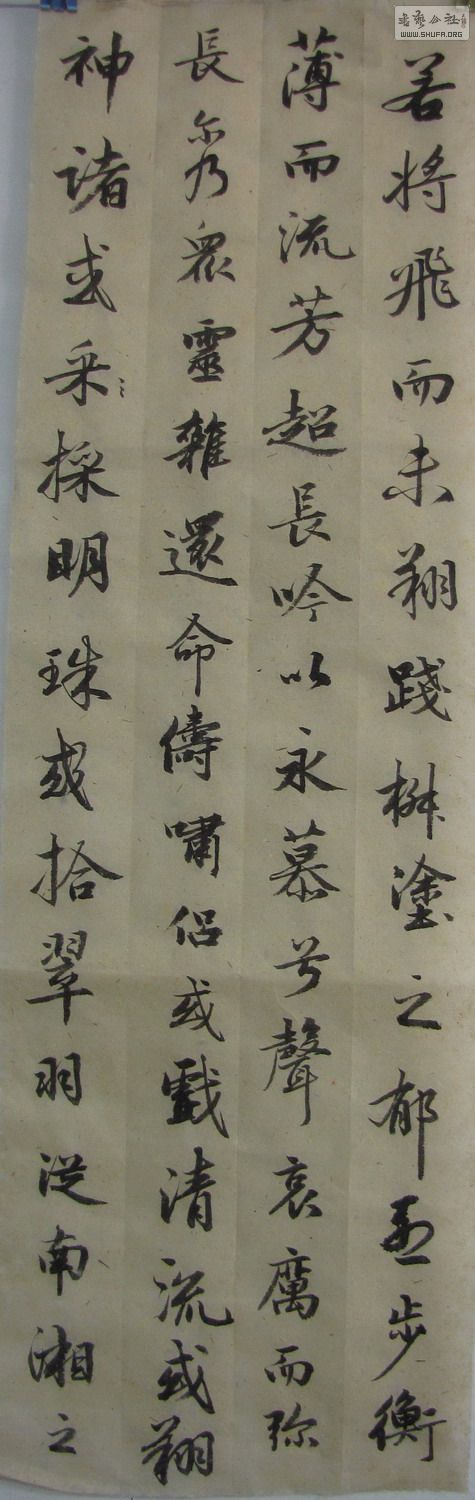 若將飛而未翔踐椒塗之郁烈步衡
薄而流芳超長吟以永慕兮聲哀厲而弥
長尔乃眾靈雜還命儔嘯侶或戲清流或翔
神渚或采採明珠或拾翠羽從南湘之
書藝公社
WWW.SHUFA.ORG